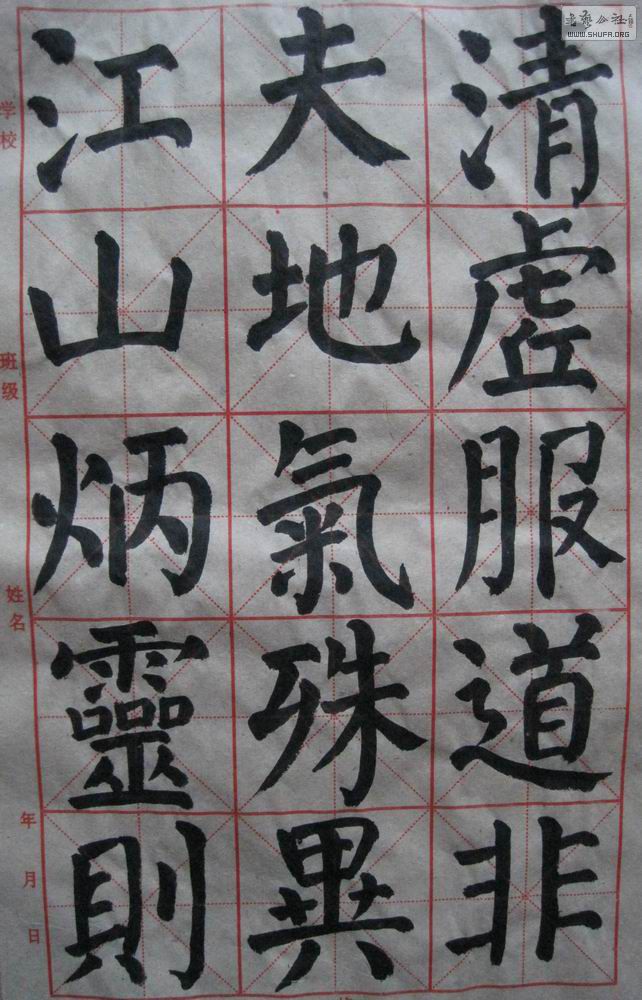 清虚服道非
夫地氣殊異
江山炳靈則
学校 班级 姓名 年 月 日
書藝公社
WWW.SHUFA.ORG